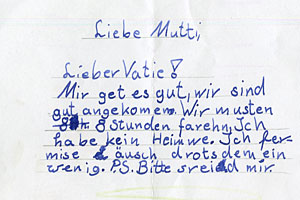 Liebe Mutti,
Lieber Vatie!
Mir get es gut, wir sind
gut angekomen. Wir musten
8 Stunden farehn, Ich
habe kein Heimwe. Ich fer-
mise äusch drotsdem ein
wenig. P.S. Bitte sreid mir